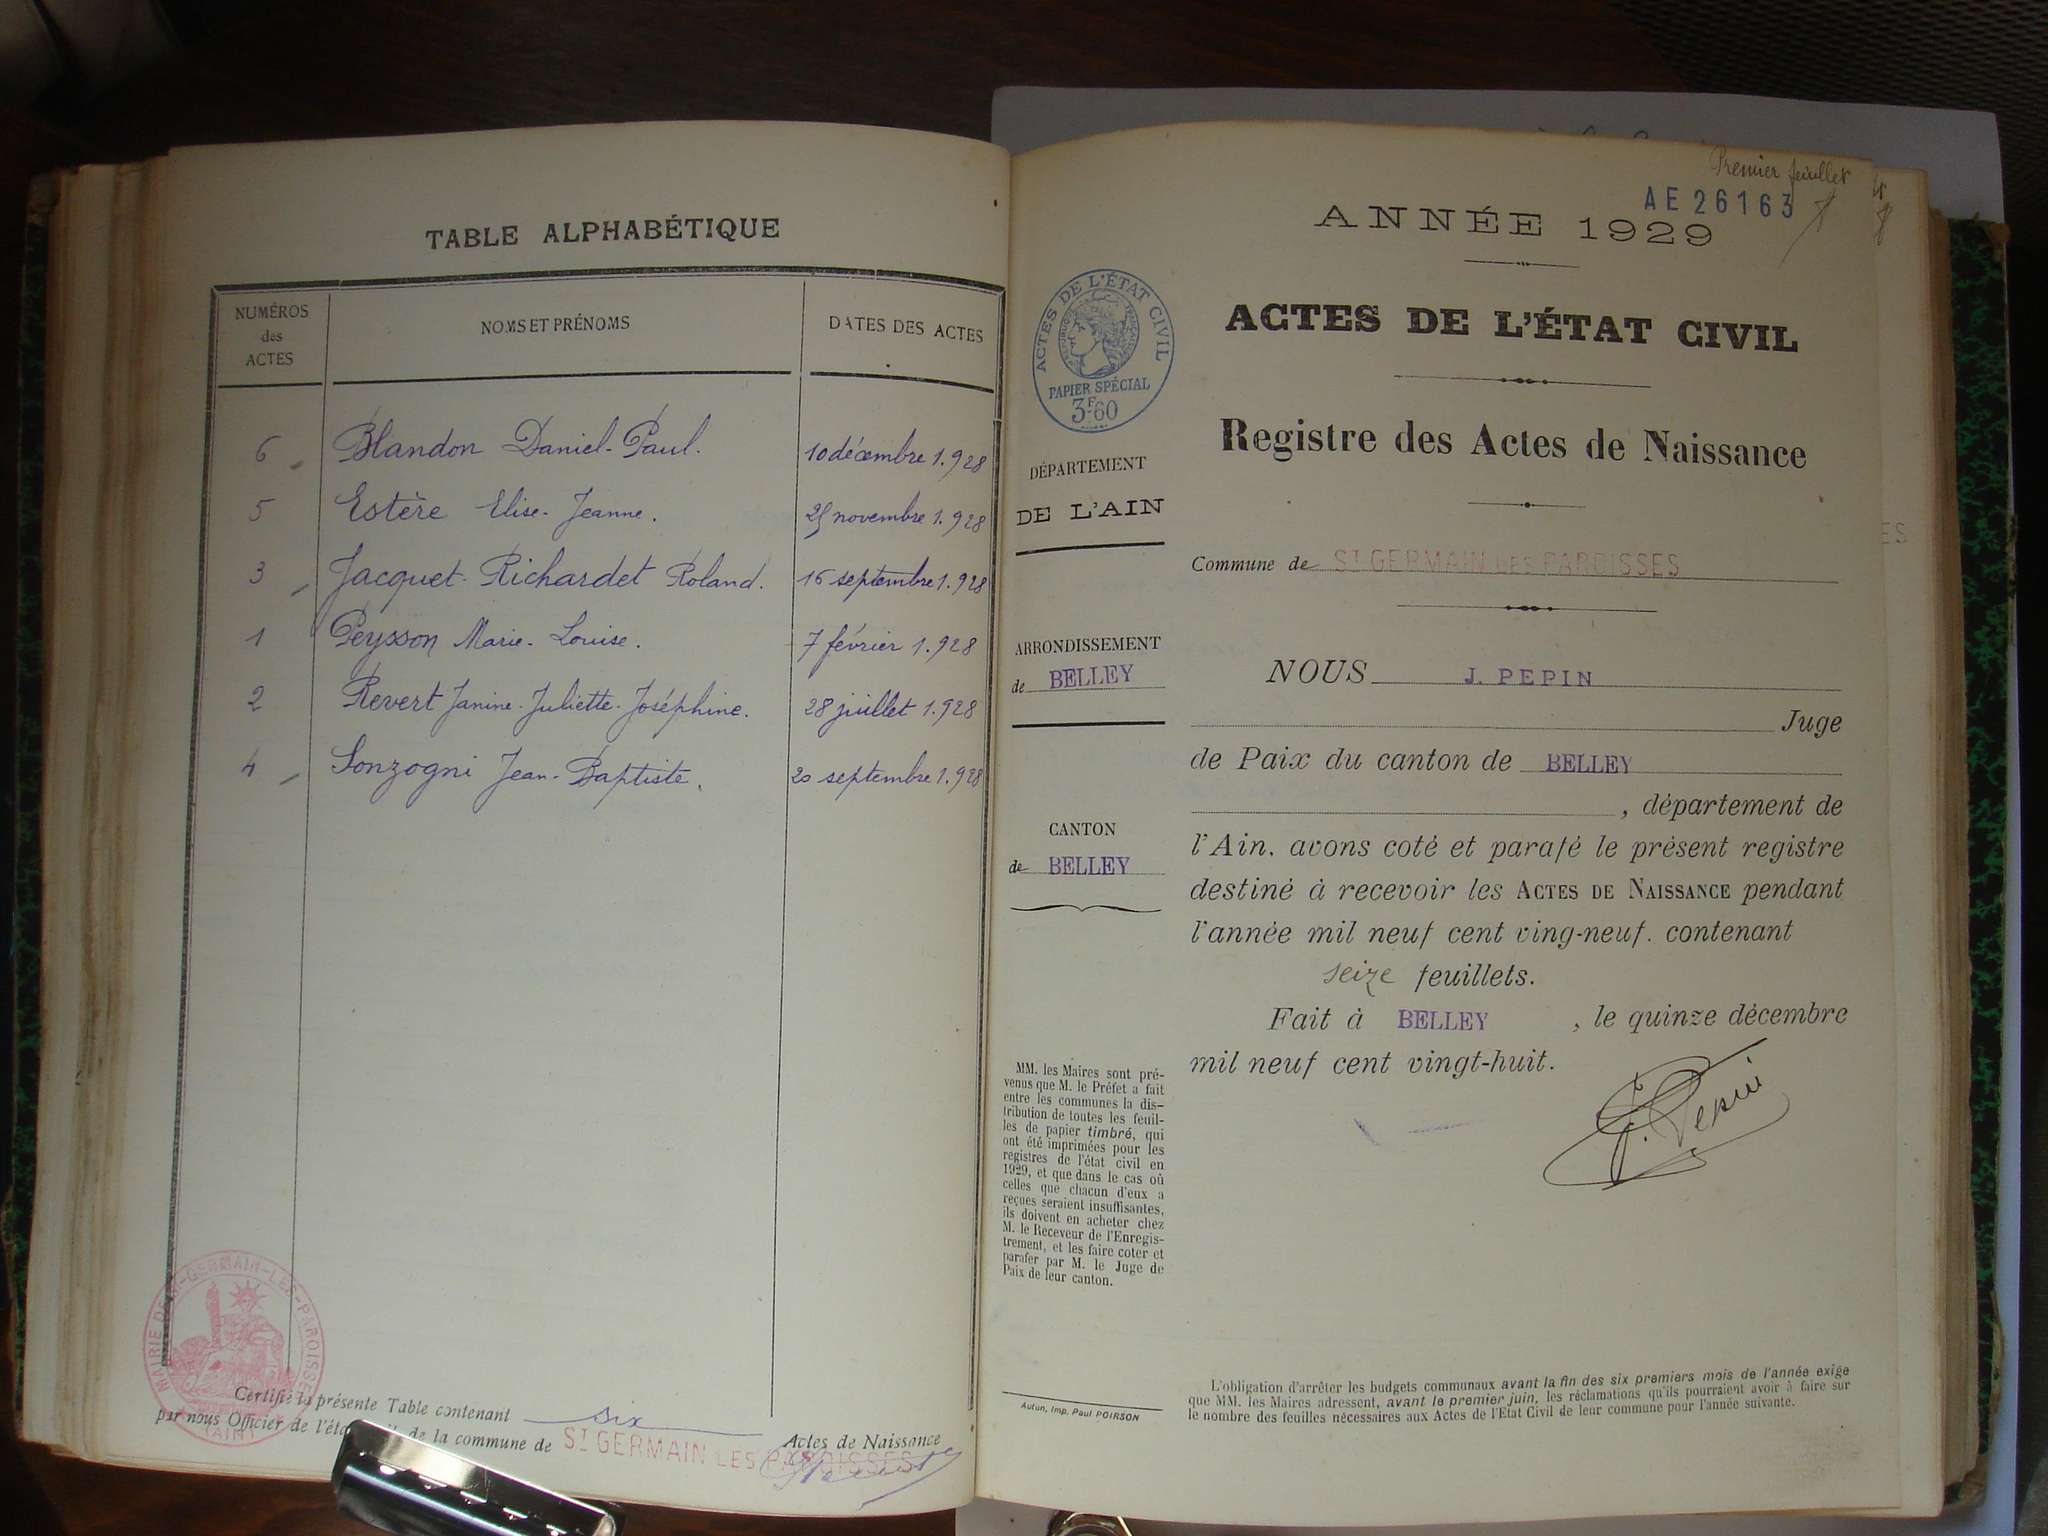 TABLE ALPHABÉTIQUE
NUMÉROS des ACTES
NOMS ET PRÉNOMS
DATES DES ACTES
6 Blandon Daniel-Paul. 10 décembre 1.928
5 Estère Elise-Jeanne. 25 novembre 1.928
3 Jacquet-Richardet Roland. 16 septembre 1.928
1 Peysson Marie-Louise. 7 février 1.928
2 Revert Janine-Juliette-Joséphine. 28 juillet 1.928
4 Sonzogni Jean-Baptiste. 20 septembre 1.928
MAIRIE DE ST-GERMAIN-LES-PAROISSES
(AIN)
Certifié la présente Table contenant six Actes de Naissance
par nous Officier de l'état de la commune de ST GERMAIN LES PAROISSES
Premier feuillet
AE 26163
ANNÉE 1929
ACTES DE L'ÉTAT CIVIL
PAPIER SPÉCIAL
3F60
ACTES DE L'ÉTAT CIVIL
Registre des Actes de Naissance
DÉPARTEMENT
DE L'AIN
Commune de ST GERMAIN LES PAROISSES
ARRONDISSEMENT
de BELLEY
CANTON
de BELLEY
NOUS J. PEPIN
Juge
de Paix du canton de BELLEY
, département de
l'Ain, avons coté et parafé le présent registre
destiné à recevoir les ACTES DE NAISSANCE pendant
l'année mil neuf cent ving-neuf. contenant
seize feuillets.
Fait à BELLEY , le quinze décembre
mil neuf cent vingt-huit.
J. Pepin
MM. les Maires sont pré-
venus que M. le Préfet a fait
entre les communes la dis-
tribution de toutes les feuil-
les de papier timbré, qui
ont été imprimées pour les
registres de l'état civil en
1929, et que dans le cas où
celles que chacun d'eux a
reçues seraient insuffisantes,
ils doivent en acheter chez
M. le Receveur de l'Enregis-
trement, et les faire coter et
parafer par M. le Juge de
Paix de leur canton.
Autun, Imp. Paul POIRSON
L'obligation d'arrêter les budgets communaux avant la fin des six premiers mois de l'année exige
que MM. les Maires adressent, avant le premier juin, les réclamations qu'ils pourraient avoir à faire sur
le nombre des feuilles nécessaires aux Actes de l'Etat Civil de leur commune pour l'année suivante.